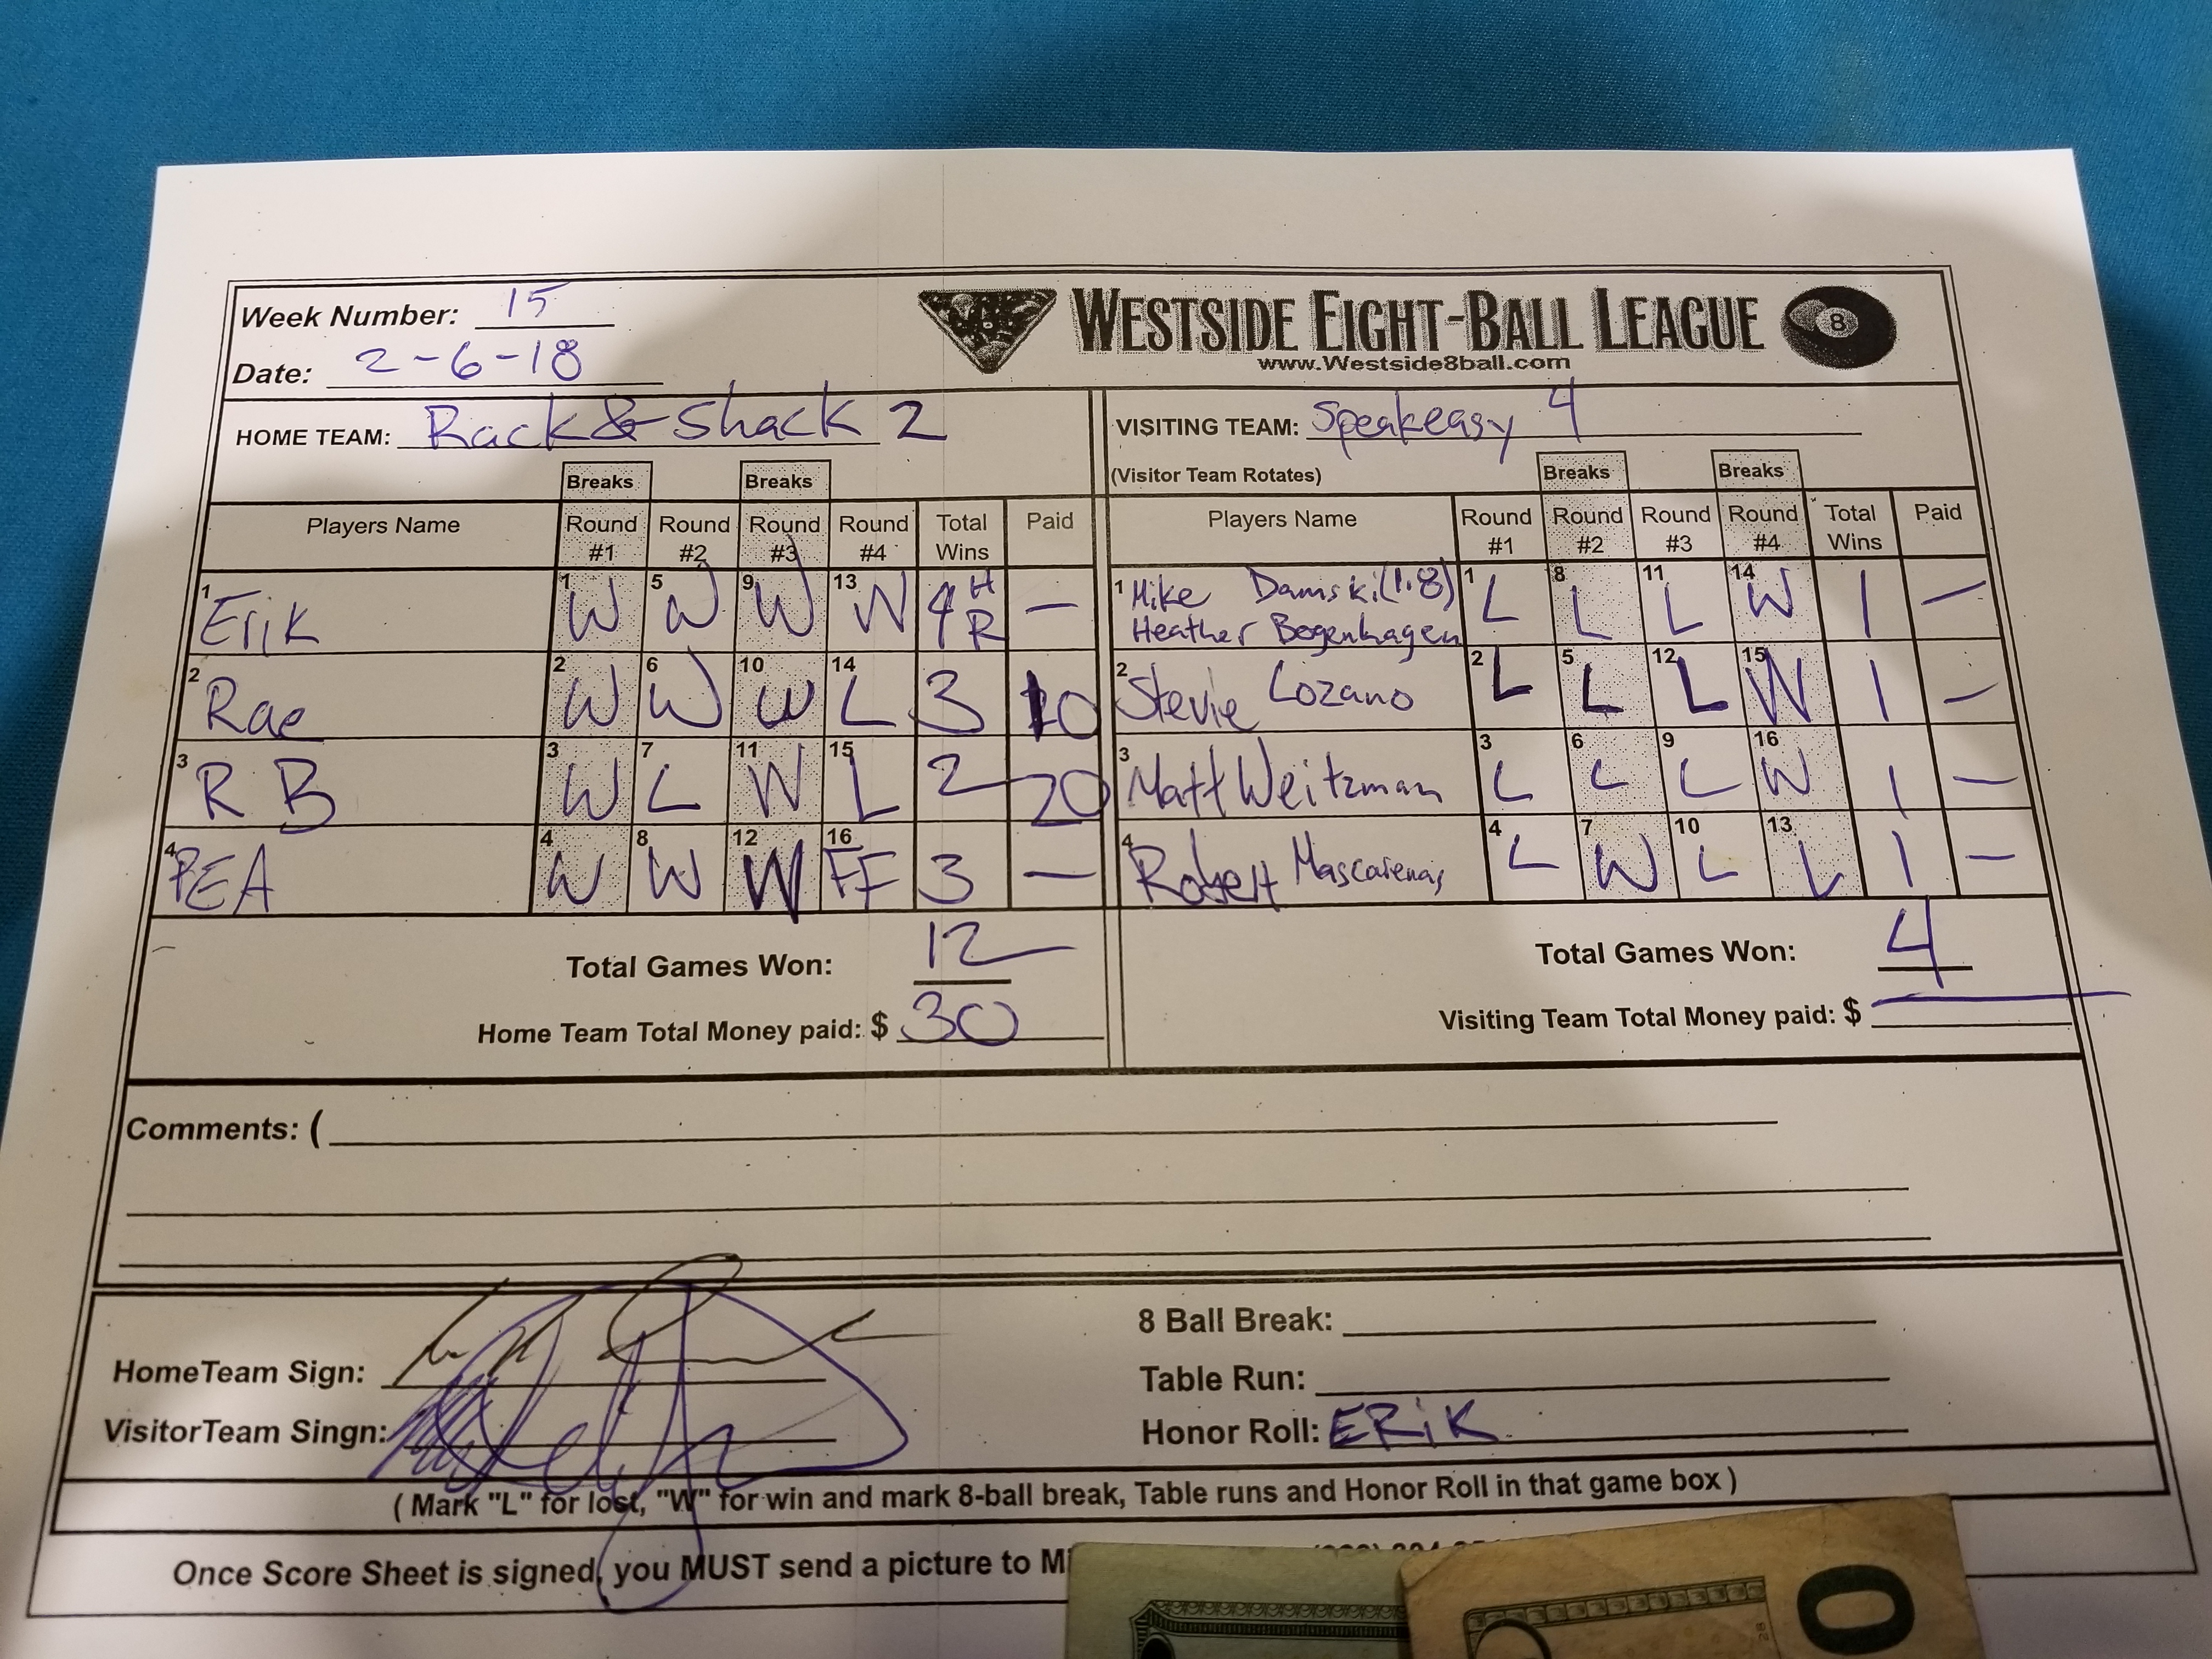 Week Number: 15
Date: 2-6-18
WESTSIDE EIGHT-BALL LEAGUE 8
www.Westside8ball.com
HOME TEAM: Rack & Shack 2
VISITING TEAM: Speakeasy 4
(Visitor Team Rotates)
Breaks Breaks Breaks Breaks
Players Name Round #1 Round #2 Round #3 Round #4 Total Wins Paid
Players Name Round #1 Round #2 Round #3 Round #4 Total Wins Paid
1 Erik 1 W 5 W 9 W 13 W 4 H R —
1 Mike Damski (1.8) Heather Bogenhagen 1 L 8 L 11 L 14 W 1 —
2 Rae 2 W 6 W 10 W 14 L 3 10
2 Stevie Lozano 2 L 5 L 12 L 15 W 1 —
3 R B 3 W 7 L 11 W 15 L 2 20
3 Matt Weitzman 3 L 6 L 9 L 16 W 1 —
4 PEA 4 W 8 W 12 W 16 FF 3 —
4 Robert Mascarenas 4 L 7 W 10 L 13 L 1 —
Total Games Won: 12
Total Games Won: 4
Home Team Total Money paid: $ 30
Visiting Team Total Money paid: $ —
Comments: (
HomeTeam Sign:
VisitorTeam Singn:
8 Ball Break:
Table Run:
Honor Roll: ERiK
( Mark "L" for lost, "W" for win and mark 8-ball break, Table runs and Honor Roll in that game box )
Once Score Sheet is signed, you MUST send a picture to
0